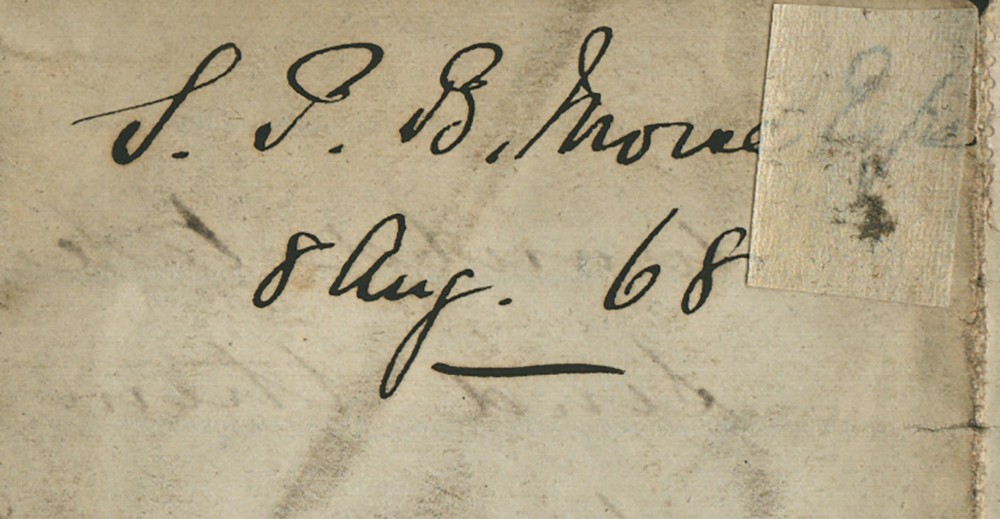 S. P. B. Morse
8 Aug. 68